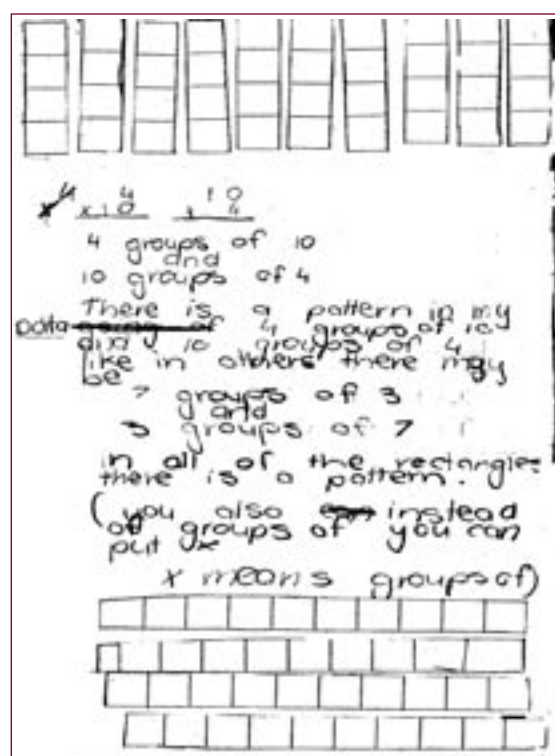 4 10
x10 x 4
4 groups of 10
and
10 groups of 4
There is a pattern in my
4 groups of 10
10 groups of 4
like in others there may
be
7 groups of 3
and
3 groups of 7
in all of the rectangles
there is a pattern.
(you also instead
of groups of you can
put x
x means groups of)